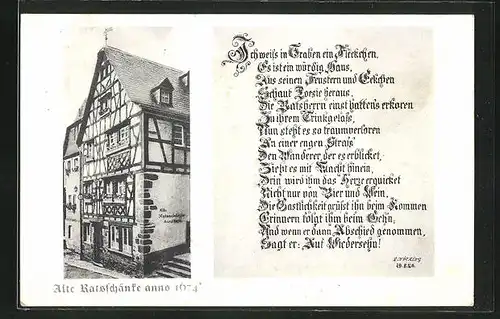 Ich weiß in Traben ein Fleckchen,
Es ist ein würdig Haus,
Aus seinen Fenstern und Eckchen
Schaut Poesie heraus,
Die Ratsherrn einst hatten's erkoren
Zu ihrem Trinkgelaß,
Nun steht es so traumverloren
An einer engen Straß'
Den Wanderer, der es erblicket,
Zieht es mit Macht hinein,
Drin wird ihm das Herz erquicket
Nicht nur von Bier und Wein,
Die Gastlichkeit grüßt ihn beim Kommen
Erinnern folgt ihm beim Gehn,
Und wenn er dann Abschied genommen,
Sagt er: „Auf Wiedersehn!
Alte Ratsschänke anno 1674